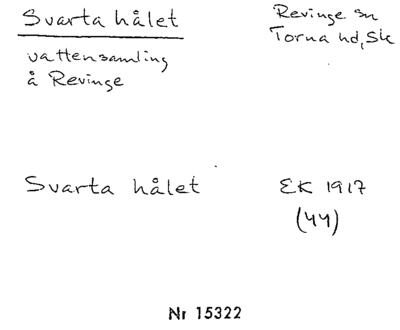 Svarta hålet
Revinge sn
Torna hd, Sk
vattensamling
å Revinge
Svarta hålet
EK 1917
(44)
Nr 15322